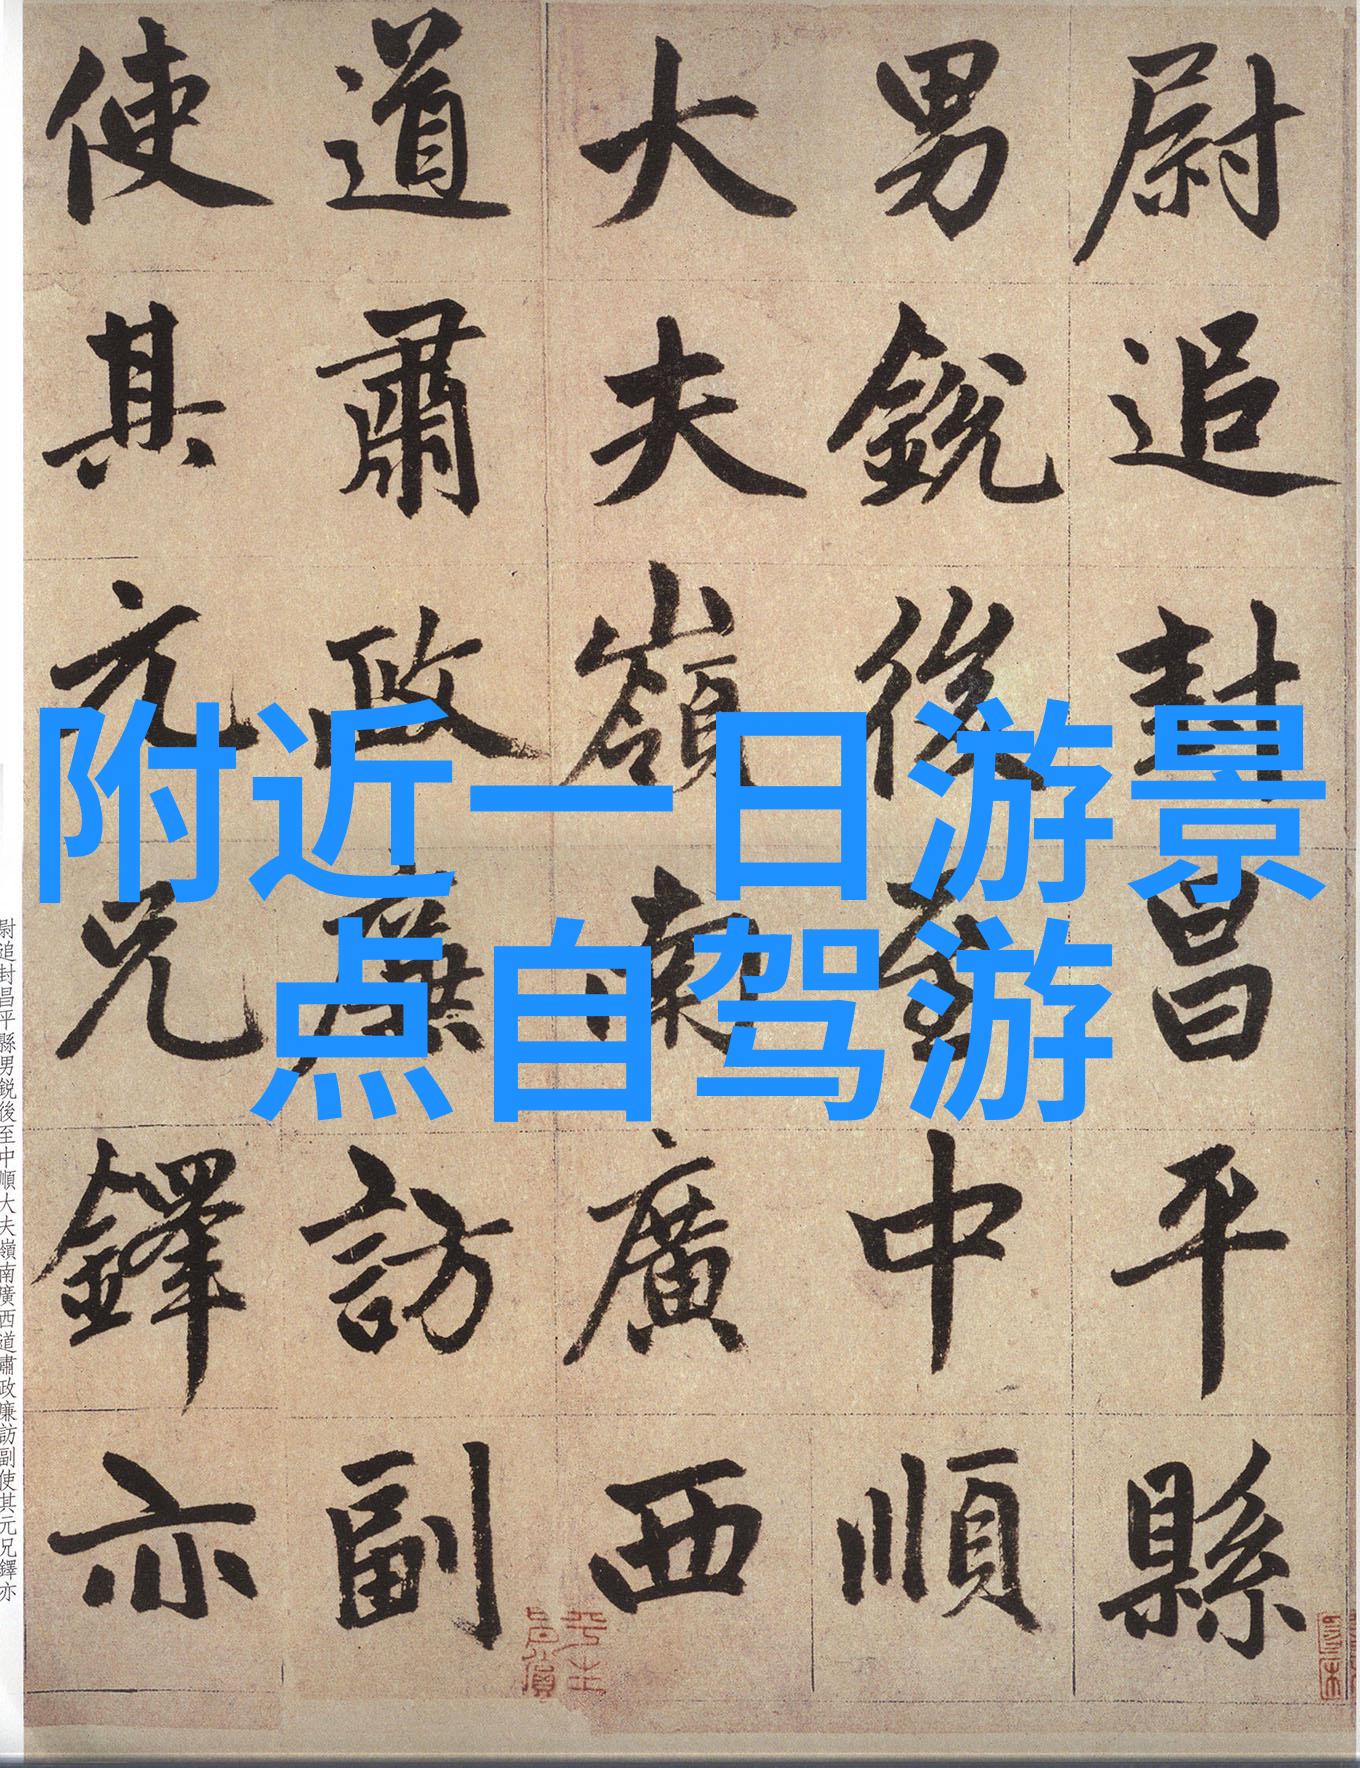 尉追封昌平縣
男銳後至中順
大夫嶺南廣西
道肅政廉訪副
使其元兄鐸亦
附近一日游景
点自驾游
尉追封昌平縣男銳後至中順大夫嶺南廣西道肅政廉訪副使其元兄鐸亦